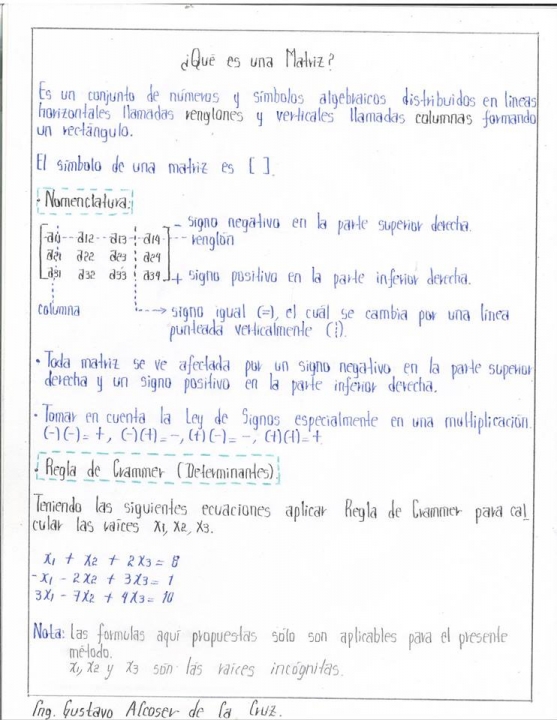 ¿Qué es una Matriz?
Es un conjunto de números y símbolos algebraicos distribuidos en líneas
horizontales llamadas renglones y verticales llamadas columnas formando
un rectángulo.
El símbolo de una matriz es [ ].
- Nomenclatura:
- signo negativo en la parte superior derecha.
a11 a12 a13 a14 renglón
a21 a22 a23 a24
a31 a32 a33 a34 + signo positivo en la parte inferior derecha.
columna signo igual (=), el cuál se cambia por una línea
punteada verticalmente (¦).
• Toda matriz se ve afectada por un signo negativo en la parte superior
derecha y un signo positivo en la parte inferior derecha.
• Tomar en cuenta la Ley de Signos especialmente en una multiplicación.
(-)(-)= +, (-)(+)= -, (+)(-)= -, (+)(+)= +
- Regla de Crammer (Determinantes).
Teniendo las siguientes ecuaciones aplicar Regla de Crammer para cal
cular las raíces X1, X2, X3.
X1 + X2 + 2X3 = 8
-X1 - 2X2 + 3X3 = 1
3X1 - 7X2 + 4X3 = 10
Nota: Las formulas aquí propuestas sólo son aplicables para el presente
método.
X1, X2 y X3 son las raíces incógnitas.
Ing. Gustavo Alcoser de la Cruz.